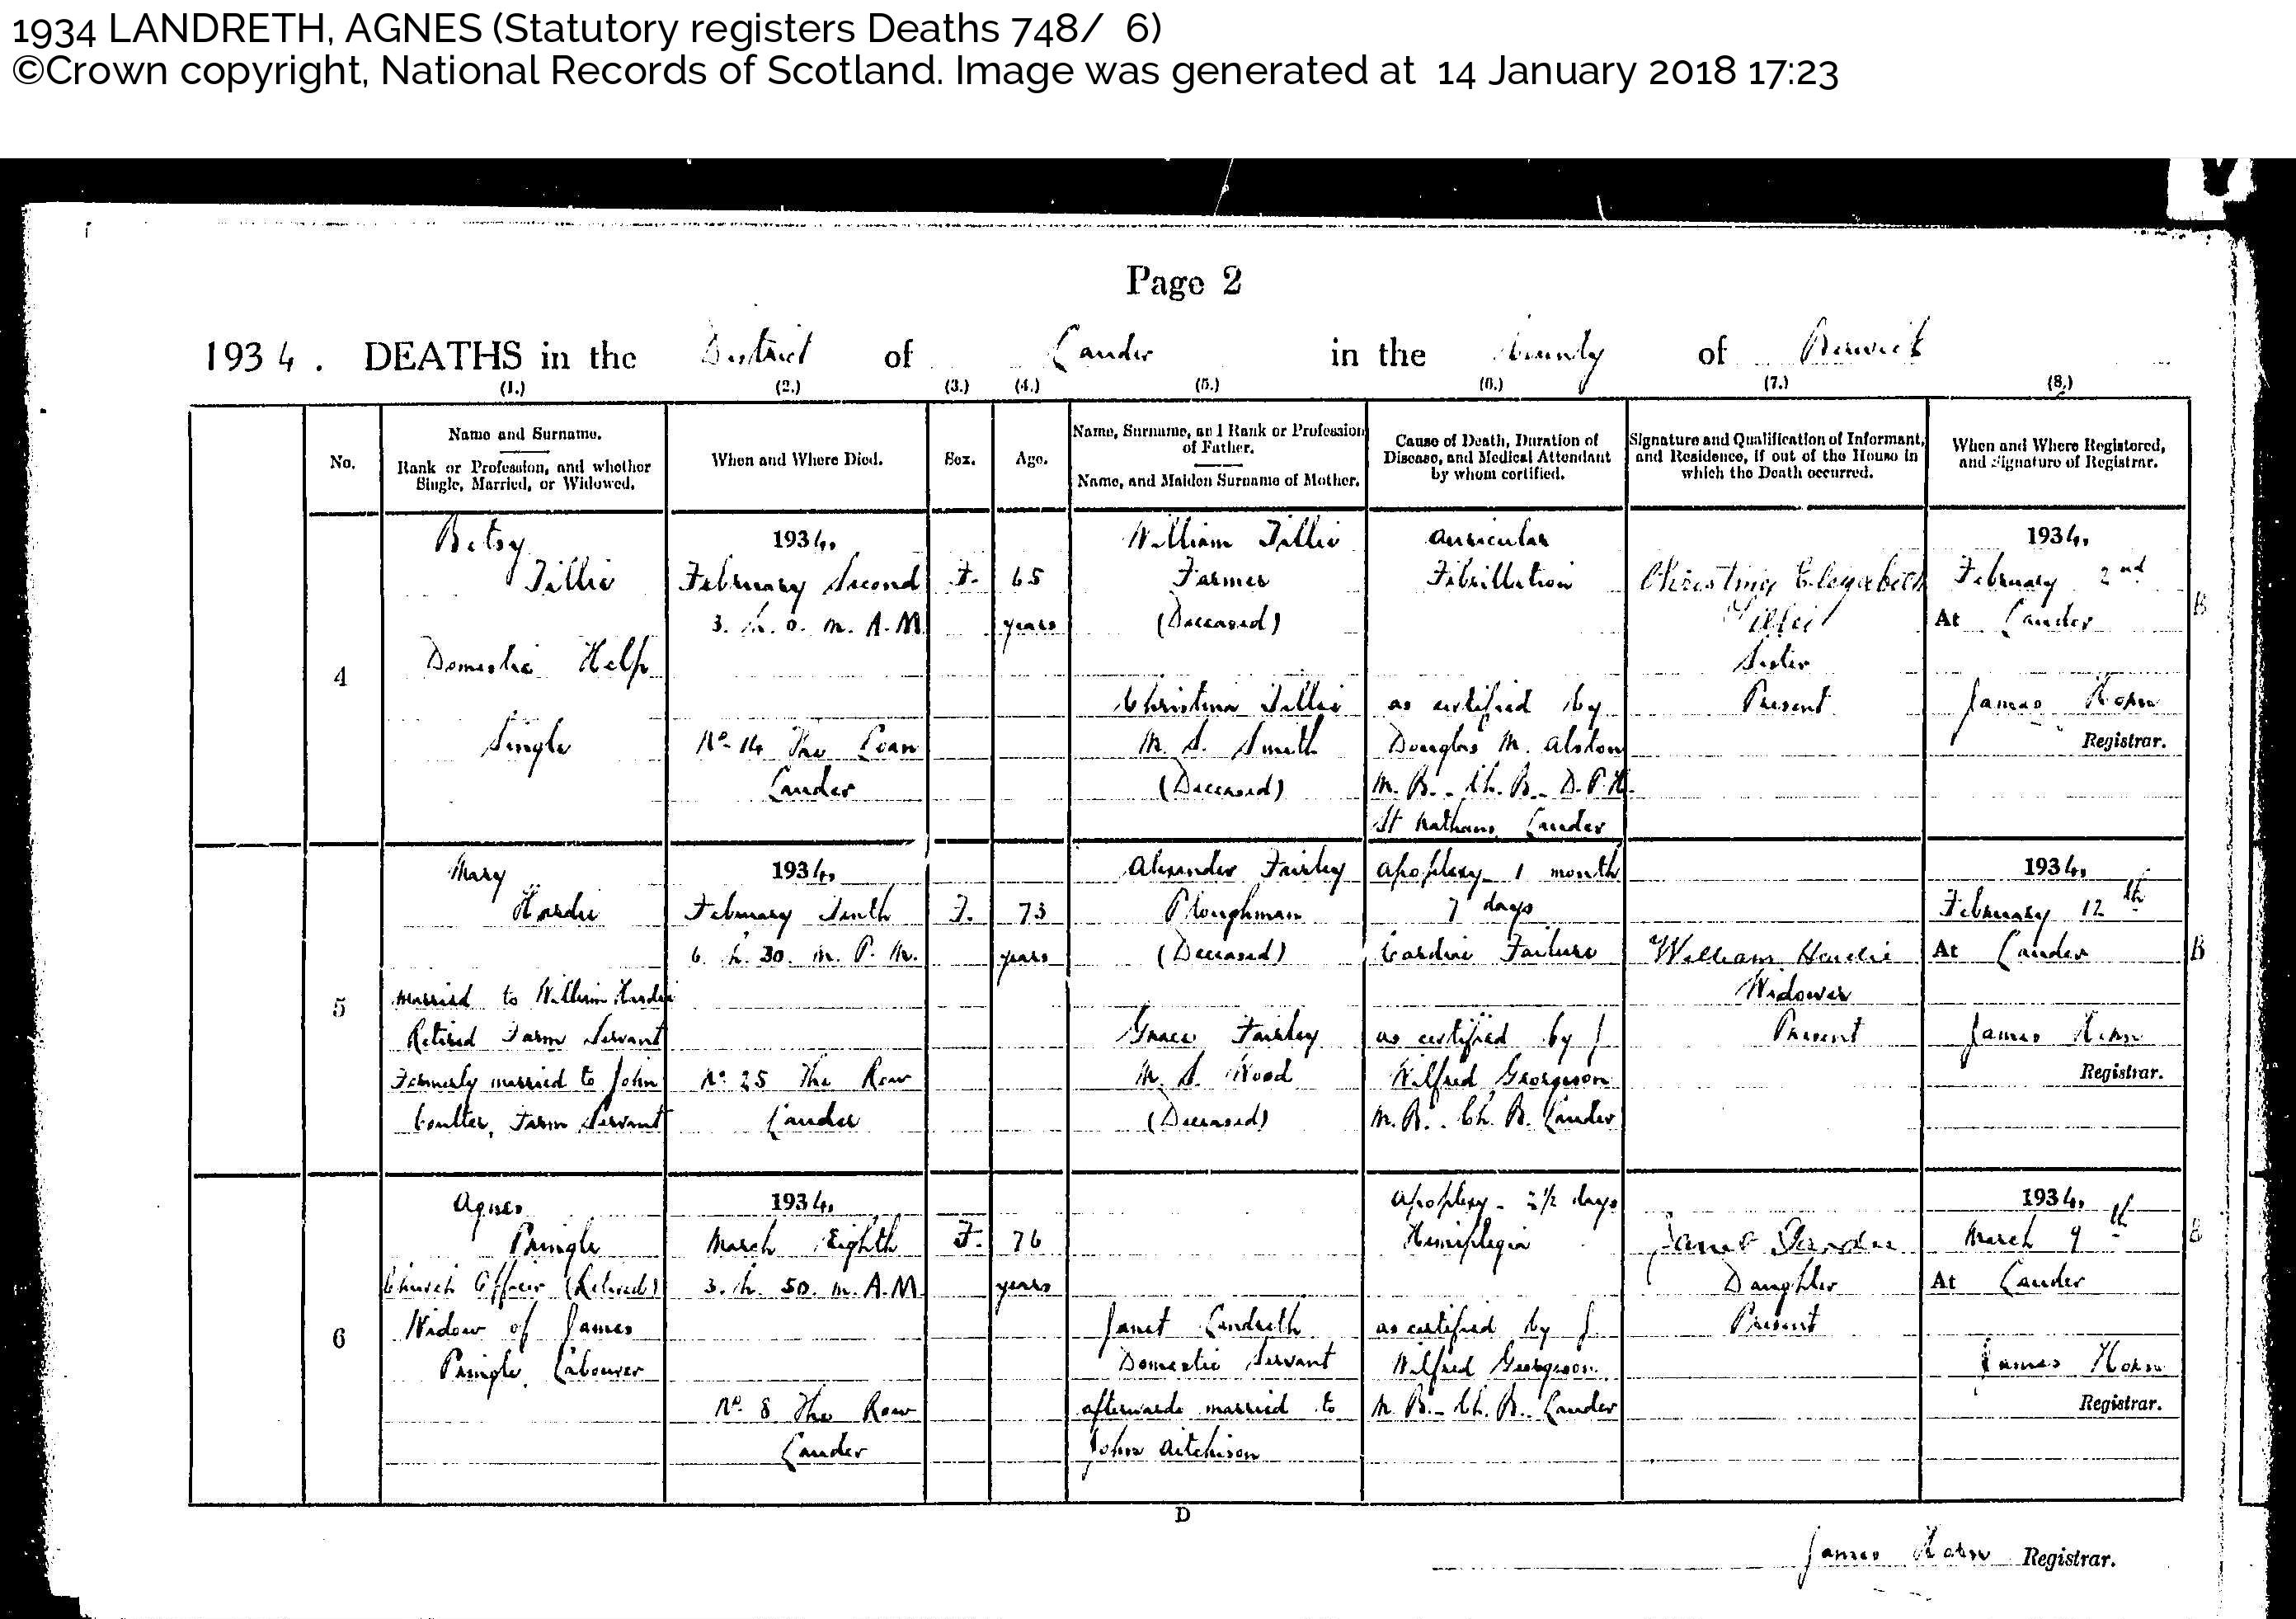 1934 LANDRETH, AGNES (Statutory registers Deaths 748/ 6)
©Crown copyright, National Records of Scotland. Image was generated at 14 January 2018 17:23
Page 2
1934. DEATHS in the District of Lauder in the County of Berwick
(1.) (2.) (3.) (4.) (5.) (6.) (7.) (8.)
No.
Name and Surname.
Rank or Profession, and whether
Single, Married, or Widowed.
When and Where Died.
Sex.
Age.
Name, Surname, and Rank or Profession
of Father.
Name, and Maiden Surname of Mother.
Cause of Death, Duration of
Disease, and Medical Attendant
by whom certified.
Signature and Qualification of Informant,
and Residence, if out of the House in
which the Death occurred.
When and Where Registered,
and Signature of Registrar.
4
Betsy
Tillie
Domestic Help
Single
1934.
February Second
3. h. 0. m. A.M.
No. 14 The Loan
Lauder
F.
65
years
William Tillie
Farmer
(Deceased)
Christina Tillie
M. S. Smith
(Deceased)
Auricular
Fibrillation
as certified by
Douglas M. Alston
M. B. - Ch. B. - D. P. H.
St Nathans Lauder
Christina Elizabeth
Tillie
Sister
Present
1934.
February 2nd
At Lauder
James Horn
Registrar.
B
5
Mary
Hardie
Married to William Hardie
Retired Farm Servant
Formerly married to John
Coulter, Farm Servant
1934.
February Tenth
6. h. 30. m. P. M.
No. 25 The Row
Lauder
F.
73
years
Alexander Fairley
Ploughman
(Deceased)
Grace Fairley
M. S. Wood
(Deceased)
Apoplexy - 1 month
7 days
Cardiac Failure
as certified by J
Wilfred Georgeson
M. B. - Ch. B. Lauder
William Hardie
Widower
Present
1934.
February 12th
At Lauder
James Horn
Registrar.
B
6
Agnes
Pringle
Church Officer (Retired)
Widow of James
Pringle, Labourer
1934.
March Eighth
3. h. 50. m. A.M.
No. 8 The Row
Lauder
F.
76
years
Janet Landreth
Domestic Servant
afterwards married to
John Aitchison
Apoplexy - 2½ days
Hemiplegia
as certified by J
Wilfred Georgeson
M. B. - Ch. B. Lauder
Janet
Daughter
Present
1934.
March 9th
At Lauder
James Horn
Registrar.
B
D
James Horn Registrar.